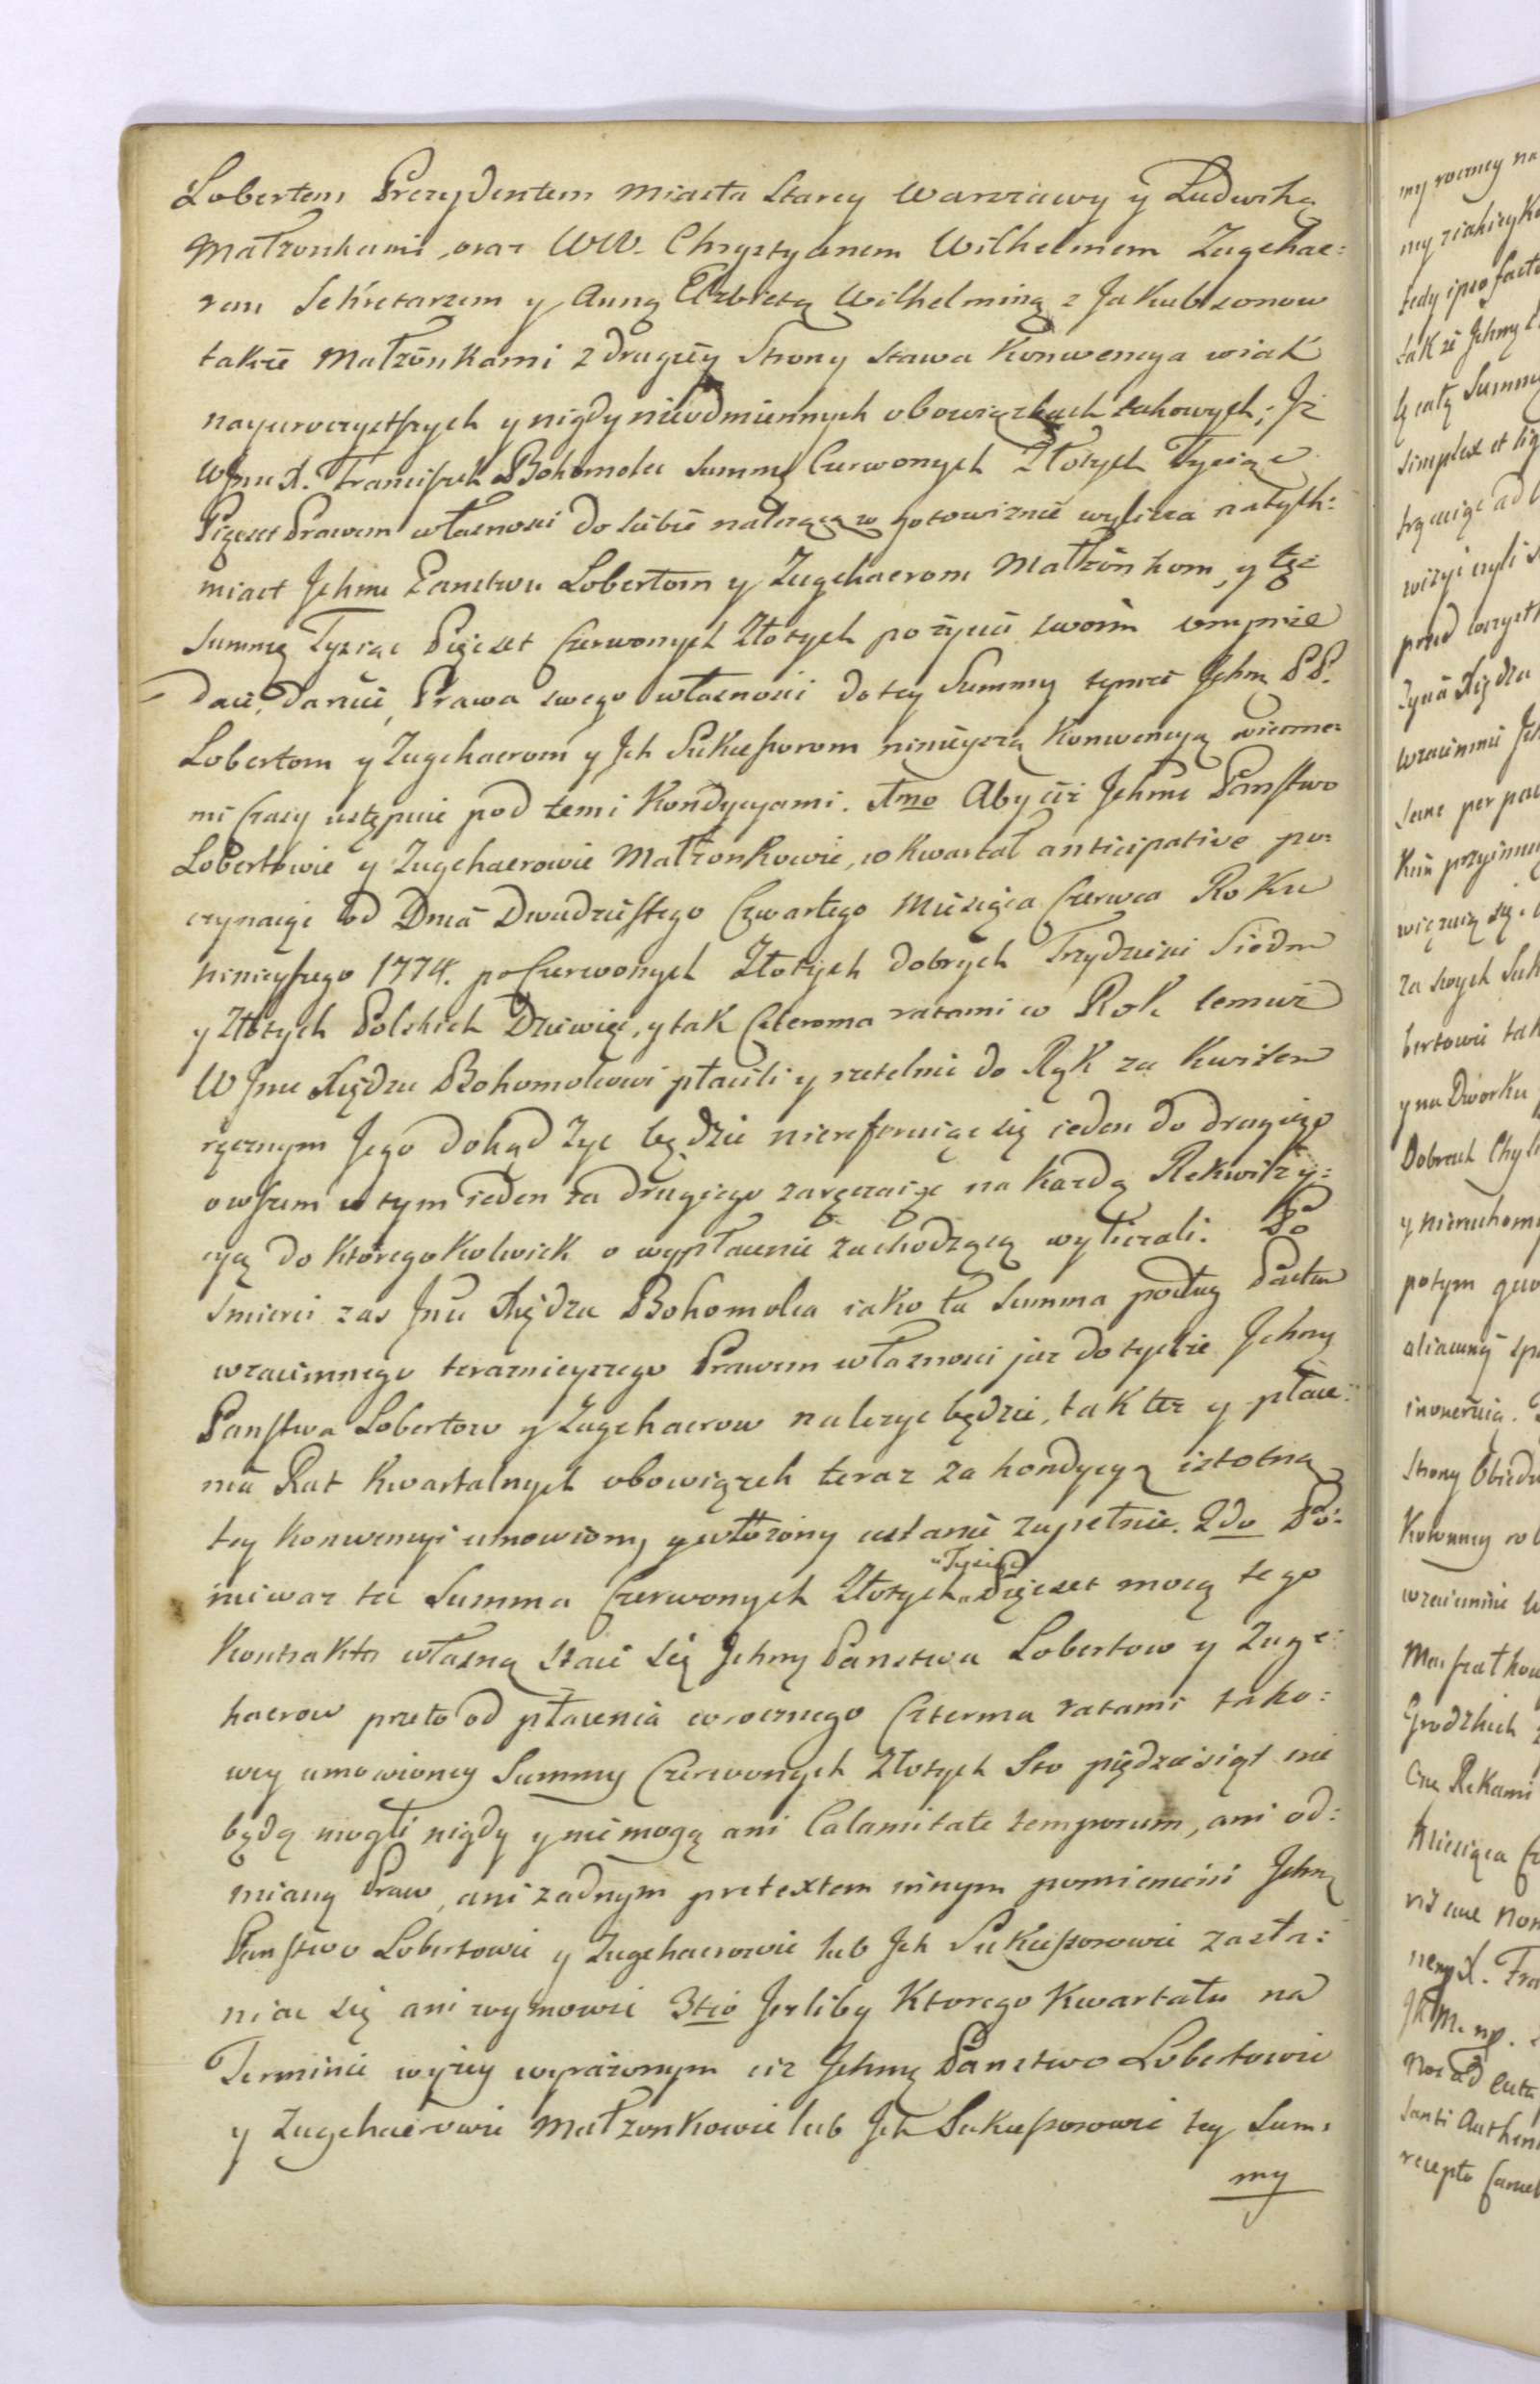 Lobertem Prezydentem Miasta Starey Warszawy y Ludwiką
Małzonkami, oraz WW. Chrystyanem Wilhelmem Zugehae:
rem Sekretarzem y Anną Elzbietą Wilhelminą z Jakubsonow
także Małżonkami z drugiey Strony stawa Konwencya w iak
nayuroczystszych y nigdy nieodmiennych obowiązkach takowych; Iż
WJmć X. Franciszek Bohomolec Summę Czerwonych Złotych Tysiąc
Pięcset Prawem własnosci do siebie nalezącą w gotowiznie wylicza natych:
miast Jchmć Panstwu Lobertom y Zugehaerom Małżonkom, y tęż
Summę Tysiąc Pięcset Czerwonych Złotych po życiu swoim
daie, daruie, Prawa swego własnosci do tey Summy tymze Jchm PP.
Lobertom y Zugehaerom y Jch Sukcessorom ninieyszą Konwencyą wieczne:
mi Czasy ustępuie pod temi Kondycyami. 1mo Aby ciż Jchmć Panstwo
Lobertowie y Zugehaerowie Małżonkowie, co kwartał anticipative po:
czynaiąc od Dnia Dwudziestego Czwartego Miesiąca Czerwca Roku
ninieyszego 1774. po Czerwonych Złotych dobrych Trzydzieści Siedm
y Złotych Polskich Dziewięc, y tak Czterema ratami co Rok temuż
WJmć Xiędzu Bohomolcowi płacili y rzetelnie do Rąk za Kwitem
ręcznym Jego dokąd zyc będzie niereferuiąc się ieden do drugiego
owszem w tym ieden za drugiego zaręczaiąc na każdą Rekwizy:
cyą do Któregokolwiek o wypłacenie zachodzącą wyliczali. Po
śmierci zas Jmć Xiędza Bohomolca iako ta Summa podług Paktu
wzaiemnego teraznieyszego Prawem własnosci już do tychże Jchmć
Panstwa Lobertow y Zugehaerow nalezyc będzie, tak też y płace:
nia Rat Kwartalnych obowiązek teraz za kondycyą istotną
tey Konwencyi umowiony y włożony ustanie zupełnie. 2do Po:
niewaz ta Summa Czerwonych Złotych "Tysiąc" Pięcset mocą tego
Kontraktu własną staie się Jchmć Panstwa Lobertow y Zuge:
haerow przeto od płacenia corocznego Czterma ratami tako:
wey umowioney Summy Czerwonych Złotych Sto pięcdziesiąt nie
będą mogli nigdy y nie mogą ani Calamitate temporum, ani od:
mianą Praw, ani żadnym pretextem innym pomienieni Jchmć
Panstwo Lobertowie y Zugehaerowie lub Jch Sukcessorowie zasła:
niac się ani wymowic 3tio Jezliby Ktorego Kwartału na
Terminie wyżey wyrażonym ciż Jchmć Panstwo Lobertowie
y Zugehaerowie Małzonkowie lub Jch Sukcessorowie tey Sum:
my